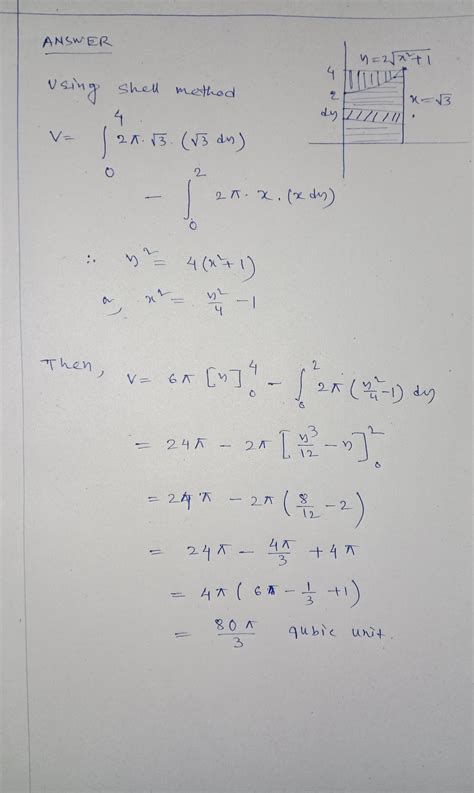 ANSWER
y=2√x²+1
4
2
dy
x=√3
Using shell method
V= ∫₀⁴ 2π.√3.(√3 dy)
- ∫₀² 2π.x.(x dy)
∴ y² = 4(x²+1)
a, x² = y²/4 -1
Then, V= 6π [y]₀⁴ - ∫₀² 2π (y²/4 -1) dy
= 24π - 2π [y³/12 - y]₀²
= 24π - 2π (8/12 - 2)
= 24π - 4π/3 + 4π
= 4π ( 6π - 1/3 +1)
= 80π/3 qubic unit.